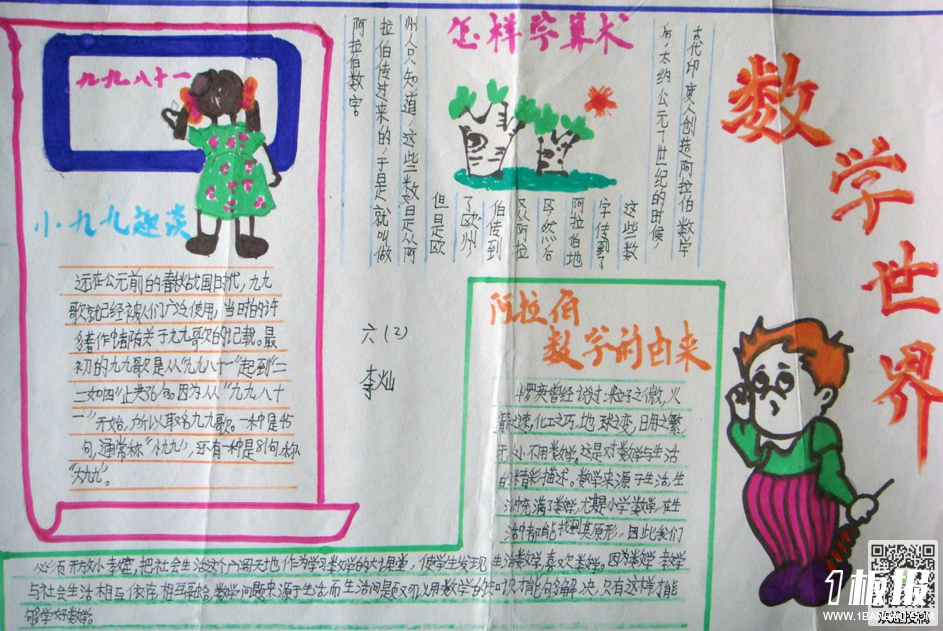 数学世界
九九八十一
小九九趣谈
远在公元前的春秋战国时代，九九
歌就已经被人们广泛使用，当时的许
多著作中都有关于九九歌的记载。最
初的九九歌是从“九九八十一”起到“二
二如四”止，共36句。因为从“九九八十
一”开始，所以取名九九歌。一种是45
句，通常称“小九九”，还有一种是81句，称
“大九九”。
怎样学算术
古代印度人创造阿拉伯数字
后，大约公元7世纪的时候，
这些数
字传到了
阿拉伯地
区，然后
又从阿拉
伯传到
了欧州，
但是欧
州人只知道，这些数字是从阿
拉伯传过来的，于是就叫做
阿拉伯数字
六(2)
李灿
阿拉伯
数字的由来
华罗庚曾经说过：粒子之微，火
箭之速，化工之巧，地球之变，日用之繁，
无处不用数学。这是对数学与生活
的精彩描述。数学来源于生活，生
活中充满了数学，尤其是小学数学，在生
活中都能找到其原形，因此我们
必须开放小教室，把社会生活这个广阔天地作为学习数学的大课堂，使学生发现生活数学，喜欢数学。因为数学教学
与社会生活相互依存，相互融合，数学问题来源于生活，而生活问题又可以用数学的知识才能够解决，只有这样才能
够学好数学。
1板报
WWW.1BANBAO.COM